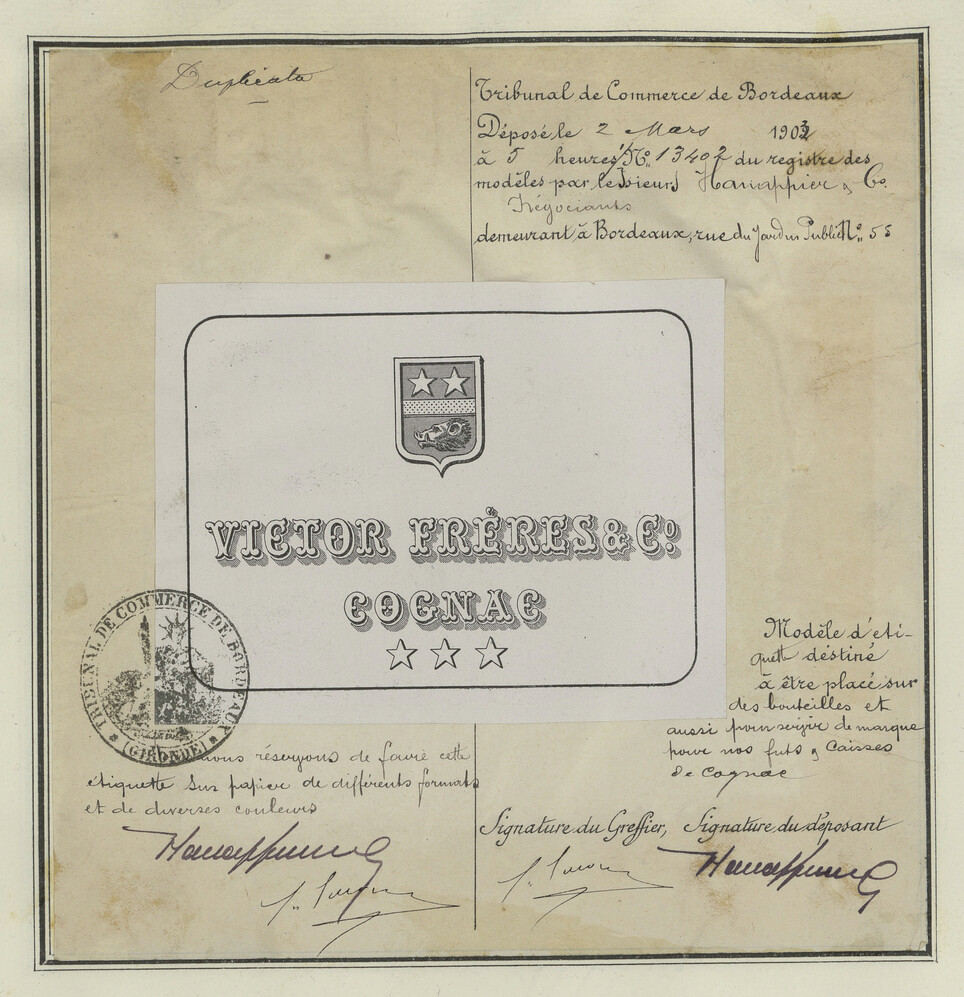 Duplicata
Tribunal de Commerce de Bordeaux
Déposé le 2 Mars 1903
à 5 heures N° 13402 du registre des
modèles par le Sieurs Hanappier & Co
Négociants
demeurant à Bordeaux, rue du Jardin Public N° 55
VICTOR FRÈRES & Co.
COGNAC
TRIBUNAL DE COMMERCE DE BORDEAUX
(GIRONDE)
Modèle d'eti-
quette destiné
à être placé sur
des bouteilles et
aussi pour servir de marque
pour nos futs & Caisses
de Cognac
réservons de faire cette
étiquette sur papier de différents formats
et de diverses couleurs
Signature du Greffier, Signature du déposant